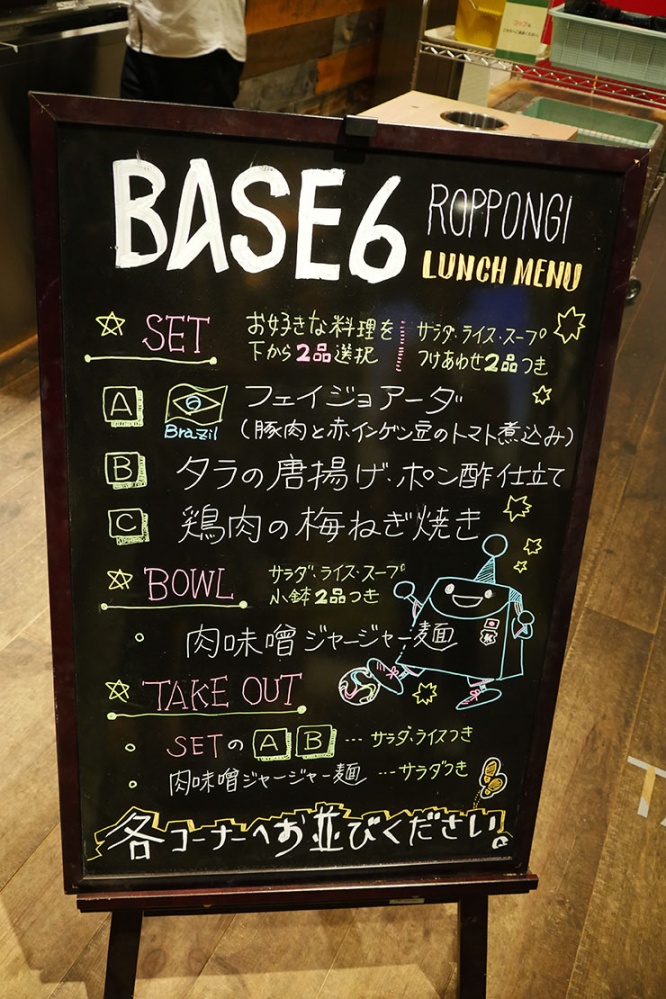 BASE6 ROPPONGI
LUNCH MENU
SET お好きな料理を
下から2品選択
サラダ・ライス・スープ
つけあわせ2品つき
A Brazil フェイジョアーダ
(豚肉と赤インゲン豆のトマト煮込み)
B タラの唐揚げ・ポン酢仕立て
C 鶏肉の梅ねぎ焼き
BOWL サラダ・ライス・スープ
小鉢2品つき
肉味噌ジャージャー麺
TAKE OUT
SETのAB…サラダ・ライスつき
肉味噌ジャージャー麺…サラダつき
各コーナーへお並びください。